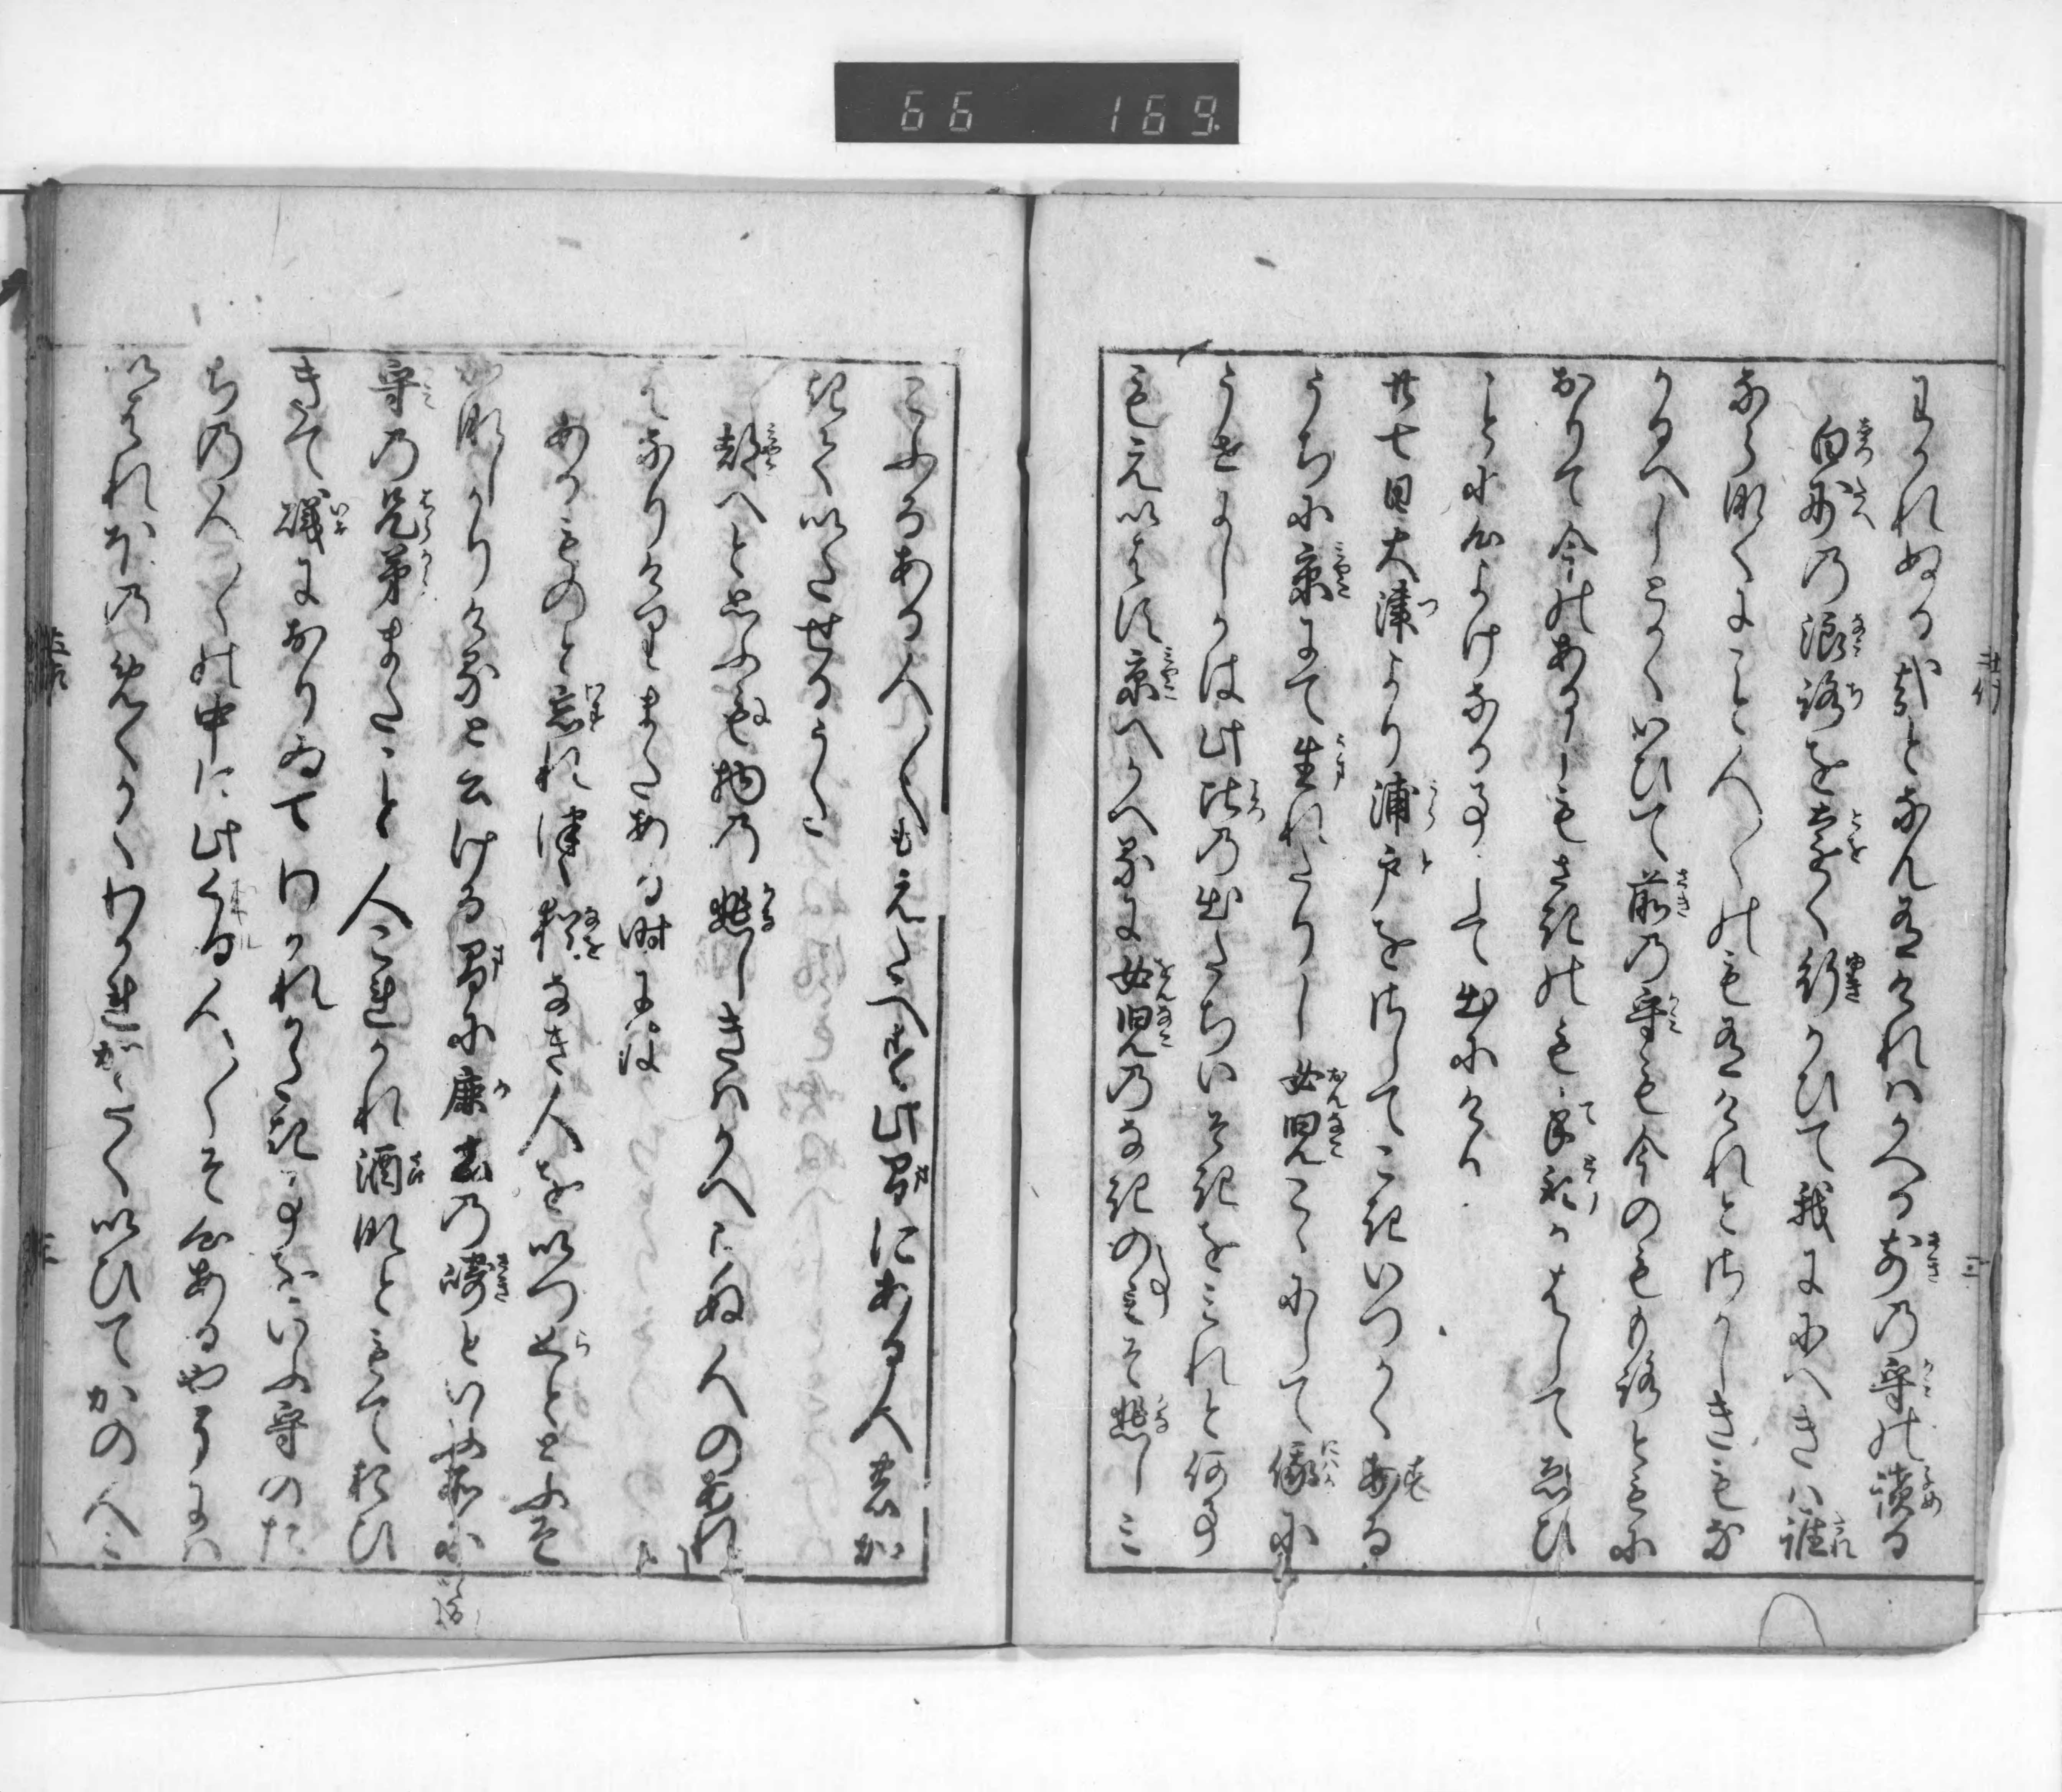 66 169.
わかれぬる哉となん有けれハかへる前の守のよめる
白妙の浪路を遠く行かひて我ににへきハ誰
ならなくにこと人〳〵のも有けれとさかしきもな
かるへしとかくいひて前の守も今のももろともに
おりて今のあるしもさきのも手取かはして酔ひ
ことに心よけなる事して出にけり
廿七日大津より浦戸をさしてこきいつかくある
うちに京にて生れたりし女児こゝにして俄に
うせにしかは此比の出たちいそきをみれと何事
もえいはす京へかへるに女児のなきのみそ悲しこ
こふるある人〳〵もえたへす此間にある人書か
きていたせるうた
都へと思ふも物の悲しきハかへらぬ人のあれハ
なりけりまたある時には
あるものと忘れ津ゝ猶なき人をいつらととふそ
悲しかりけるといひける間に鹿古の崎といふ所に
守の兄弟またこと人これかれ酒なともて追ひ
きて磯におりゐてわかれかたき事をいふ守のた
ちの人〳〵の中に此くる人〳〵そ心あるやうにハ
いはれほのめくかくわかれかたくいひてかの人〻